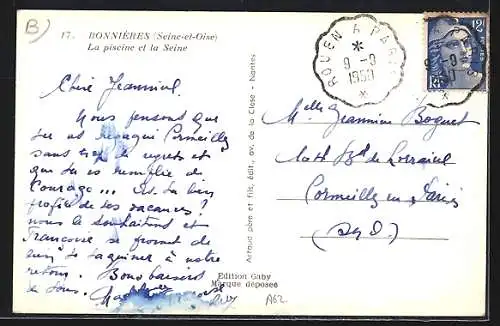 B)
17. BONNIÈRES (Seine-et-Oise)
La piscine et la Seine
ROUEN A PARIS
9-9
1950
12
Chère Jeannine,
Nous pensons que
tu as regagné Cormeilles
sans trop de regrets et
que tu es remplie de
Courage... As-tu bien
profité de tes vacances?
nous le souhaitons et
Françoise se promet de
bien te taquiner à notre
retour. Bons baisers
à tous.
Artaud père et fils, édit., av. de la Close - Nantes
Edition Gaby
Marque déposée
A62
Melle Jeannine Boquet
Bd de Lorraine
Cormeilles en Parisis
(S et O)